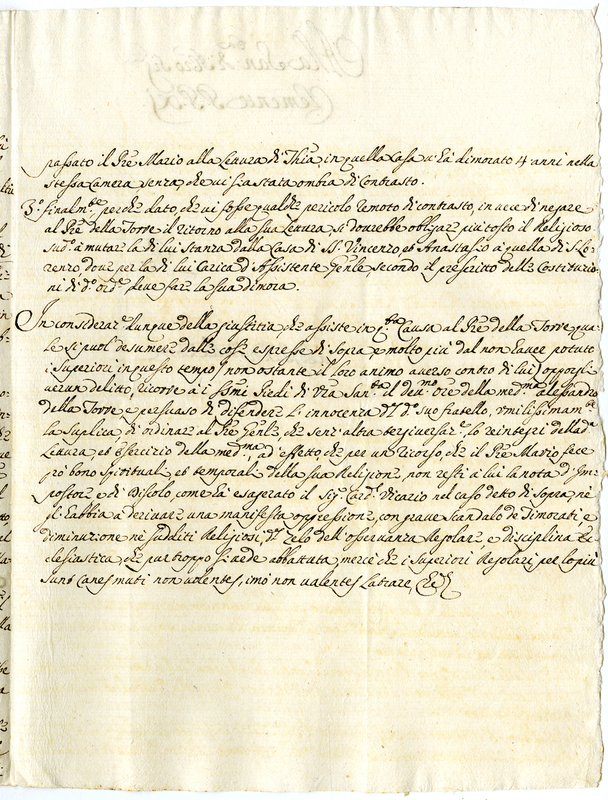 passato il Pre Mario alla lettura di Thia, in quella Casa v'ha dimorato 4 anni nella
stessa Camera senza, che vi sia stata ombra di Contrasto.
3.º finalmte perche dato, che vi fosse qualche pericolo remoto di contrasto, in vece di negare
al Pre della Torre il ritorno alla sua lettura si dourebbe obligare più tosto il Religioso
sudo à mutar la di lui stanza dalla Casa di SS. Vincenzo, et Anastasio à quella di S. Lo
renzo, doue per la di lui Carica d'Assistente Gnle secondo il prescritto delle Costitutio
ni di do ordre deue fare la sua dimora.
In considerare dunque della giustitia, che assiste in qsta Causa al Pre della Torre, qua
le si può desumere dalle cose espresse di sopra, e molto più dal non hauer potuto
i Superiori in questo tempo (non ostante il loro animo auerso contro di lui) opporgli
uerun delitto, ricorre à i Ssmi Piedi di Vra Santà il deumo ore della medma Alessandro
della Torre, e persuaso di difendere l'innocenza del do suo fratello, vmilissimamte
la suplica di ordinare al Pre Gnle, che senz'altra tergiversare lo reintegri della da
Lettura, et esercitio della medma, ad effetto, che per un ricorso, che il Pre Mario fece
pro bono spirituali, et temporali della sua Religione, non resti à lui la nota d'Im
postore, e di Discolo, come l'à esagerato il Sigr Card. Vicario nel caso detto di sopra, nè
se l'habbia à deriuare una manifesta oppressione, con graue scandalo de Timorati, e
diminuzione ne sudditi Religiosi, del zelo dell'osseruanza Regolare, e disciplina Ec
clesiastica, che pur troppo si uede abbattuta, mercè che i Superiori Regolari per lo più
sunt Canes muti non volentes, imò non valentes latrare,